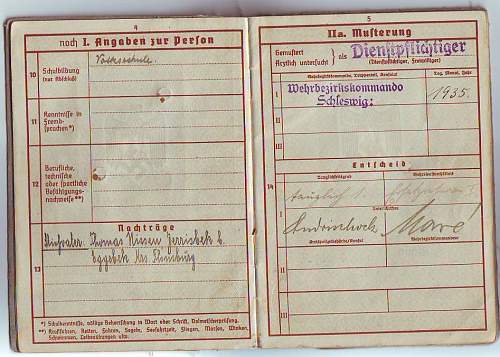 4
noch I. Angaben zur Person
10
Schulbildung
(nur Abschluß)
Volksschule.
11
Kenntnisse in
Fremd-
sprachen*)
12
Berufliche,
technische
oder sportliche
Befähigungs-
nachweise**)
Nachträge
13
Thomas Nissen Jerrisbek b.
Eggebek Krs. Flensburg
*) Schulkenntnisse, völlige Beherrschung in Wort oder Schrift, Dolmetscherprüfung.
**) Kraftfahren, Reiten, Fahren, Segeln, Seefahrtzeit, Fliegen, Morsen, Winken,
Schwimmen, Leibesübungen usw.
5
IIa. Musterung
Gemustert
Ärztlich untersucht
als
Dienstpflichtiger
(Dienstpflichtiger, Freiwilliger)
Wehrbezirkskommando, Truppenteil, Konsulat
Tag, Monat, Jahr
I
Wehrbezirkskommando
Schleswig:
1935.
II
III
Entscheid
14
Tauglichkeitsgrad
Wehrdienstverhältnis
tauglich 1.
I
Unterschriften
II
III